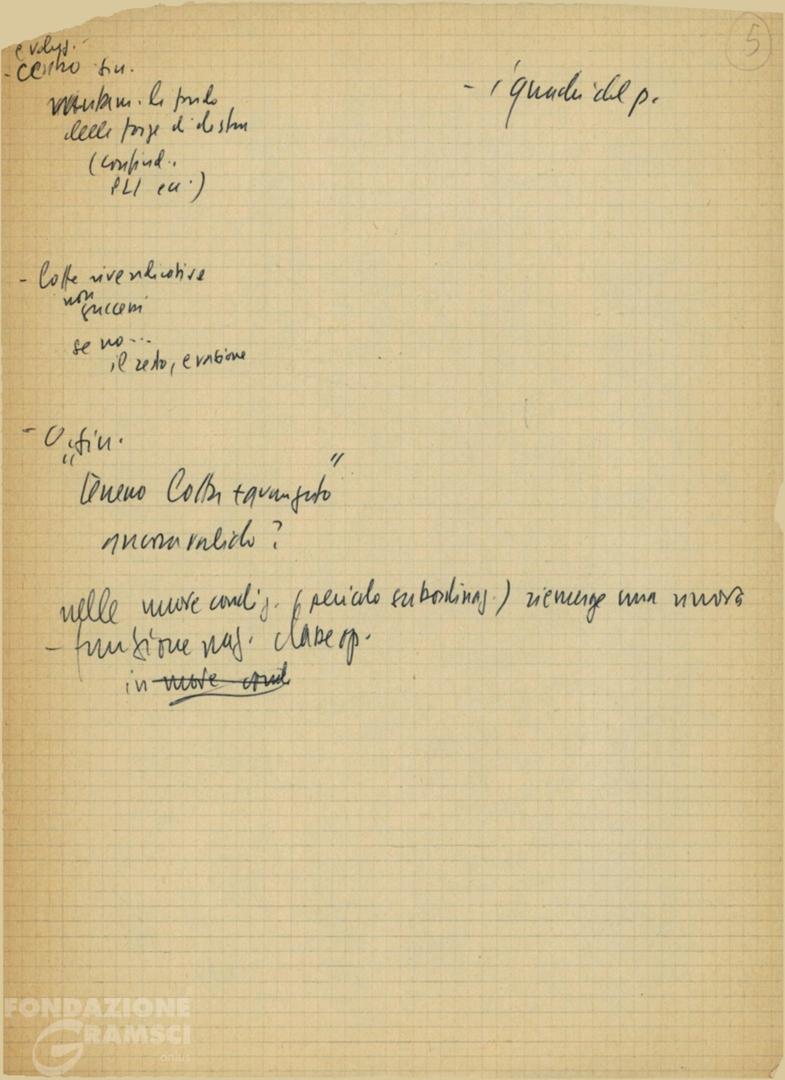 5
evoluz.
- centro sin.
delle forze di destra
(confind..
PLI ecc.)
- i quadri del p.
- lotte rivendicative
non
successi
se no...
il resto, evasione
- O, sin.
"terreno lotta + avanzato"
ancora valido?
nelle nuove condiz. (pericolo subordinaz.) riemerge una nuova
- funzione naz. classe op.
in nuove cond
FONDAZIONE
GRAMSCI
onlus